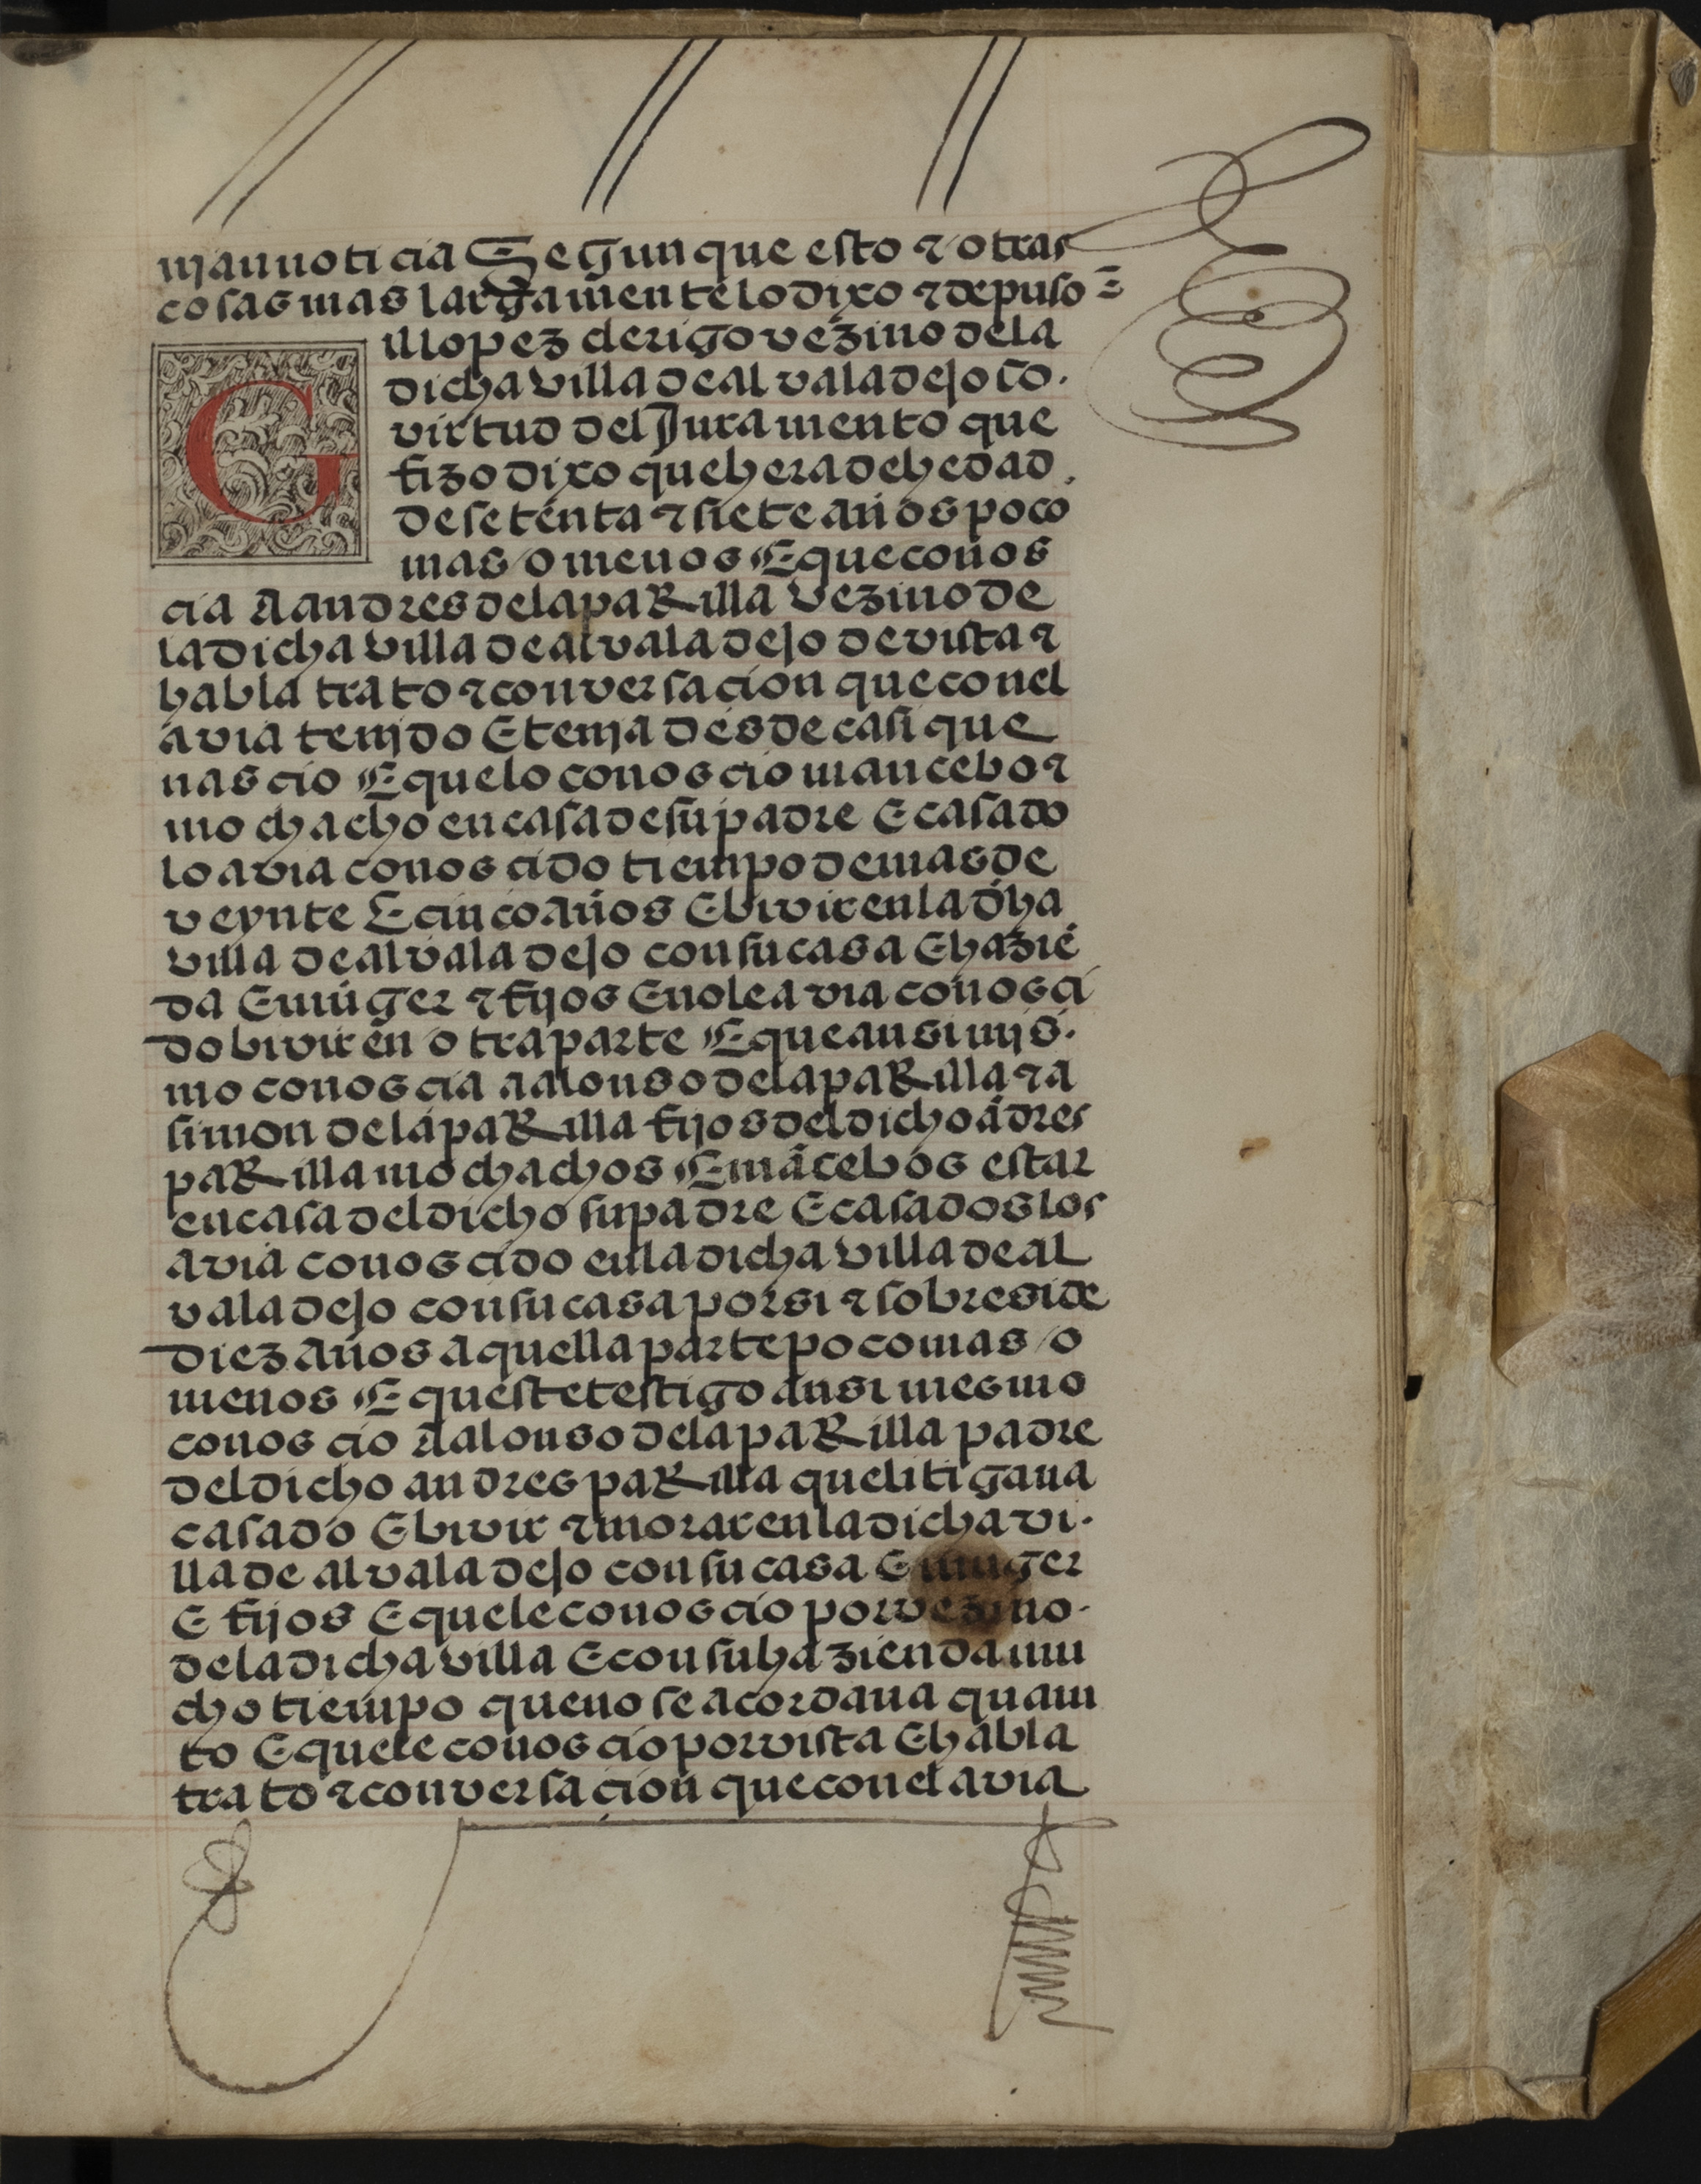 njan noticia Segun que esto ⁊ otras
cosas mas largamente lo dixo ⁊ depuso
Gil lopez clerigo vezino de la
dicha villa de alvaladejo so
virtud del Juramento que
fizo dixo que hera de hedad
de setenta ⁊ siete años poco
mas o menos E que conos
cia A andres de la paRilla vezino de
la dicha villa de alvaladejo de vista ⁊
habla trato ⁊ conversacion que con el
avia tenjdo E tenja desde casi que
nascio E que lo conoscio mancebo ⁊
mochacho en casa de su padre E casado
lo avia conoscido tiempo de mas de
veynte E cinco años E bivir en la dha
villa de alvaladejo con su casa E hazie
da E muger ⁊ fijos E no le avia conosci
do bivir en otra parte E que ansi mjs
mo conoscia a alonso de la paRilla ⁊ a
simon de la paRilla fijos del dicho ādres
paRilla mochachos E mācebos estar
en casa del dicho su padre E casados los
avia conoscido en la dicha villa de al
valadejo con su casa por si ⁊ sobre si de
diez años a quella parte poco mas o
menos E queste testigo ansi mesmo
conoscio A alonso de la paRilla padre
del dicho andres paRilla que litigaua
casado E bivir ⁊ morar en la dicha vi
lla de alvaladejo con su casa E muger
E fijos E que le conoscio por vezino
de la dicha villa E con su hazienda mu
cho tiempo que no se acordaua quam
to E que le conoscio por vista E habla
trato ⁊ conversacion que con el avia